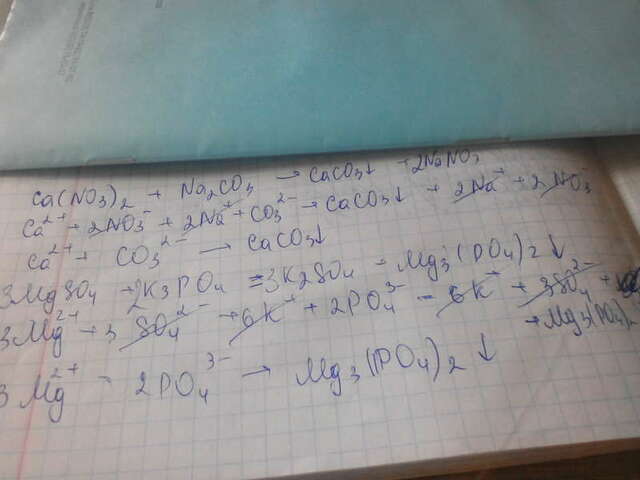 Ca(NO3)2 + Na2CO3 → CaCO3↓ + 2NaNO3
Ca²⁺ + 2NO3⁻ + 2Na⁺ + CO3²⁻ → CaCO3↓ + 2Na⁺ + 2NO3⁻
Ca²⁺ + CO3²⁻ → CaCO3↓
3MgSO4 + 2K3PO4 = 3K2SO4 - Mg3(PO4)2↓
3Mg²⁺ + 3SO4²⁻ + 6K⁺ + 2PO4³⁻ - 6K⁺ + 3SO4²⁻ +
→ Mg3(PO4)2
3Mg²⁺ - 2PO4³⁻ → Mg3(PO4)2↓